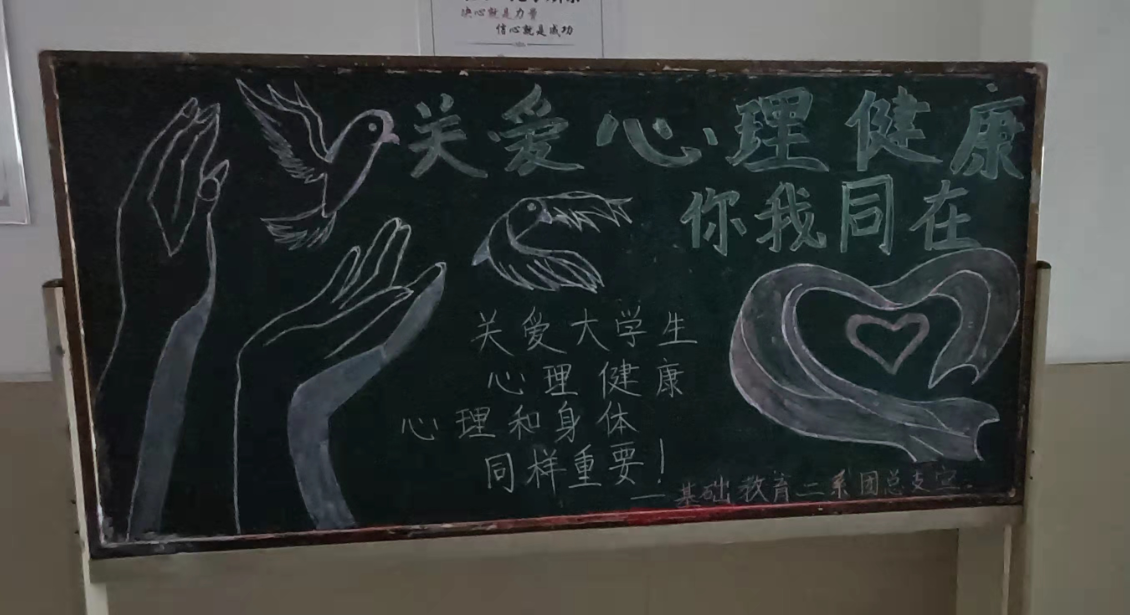 决心就是力量
信心就是成功
关爱心理健康
你我同在
关爱大学生
心理健康
心理和身体
同样重要！
——基础教育二系团总支宣